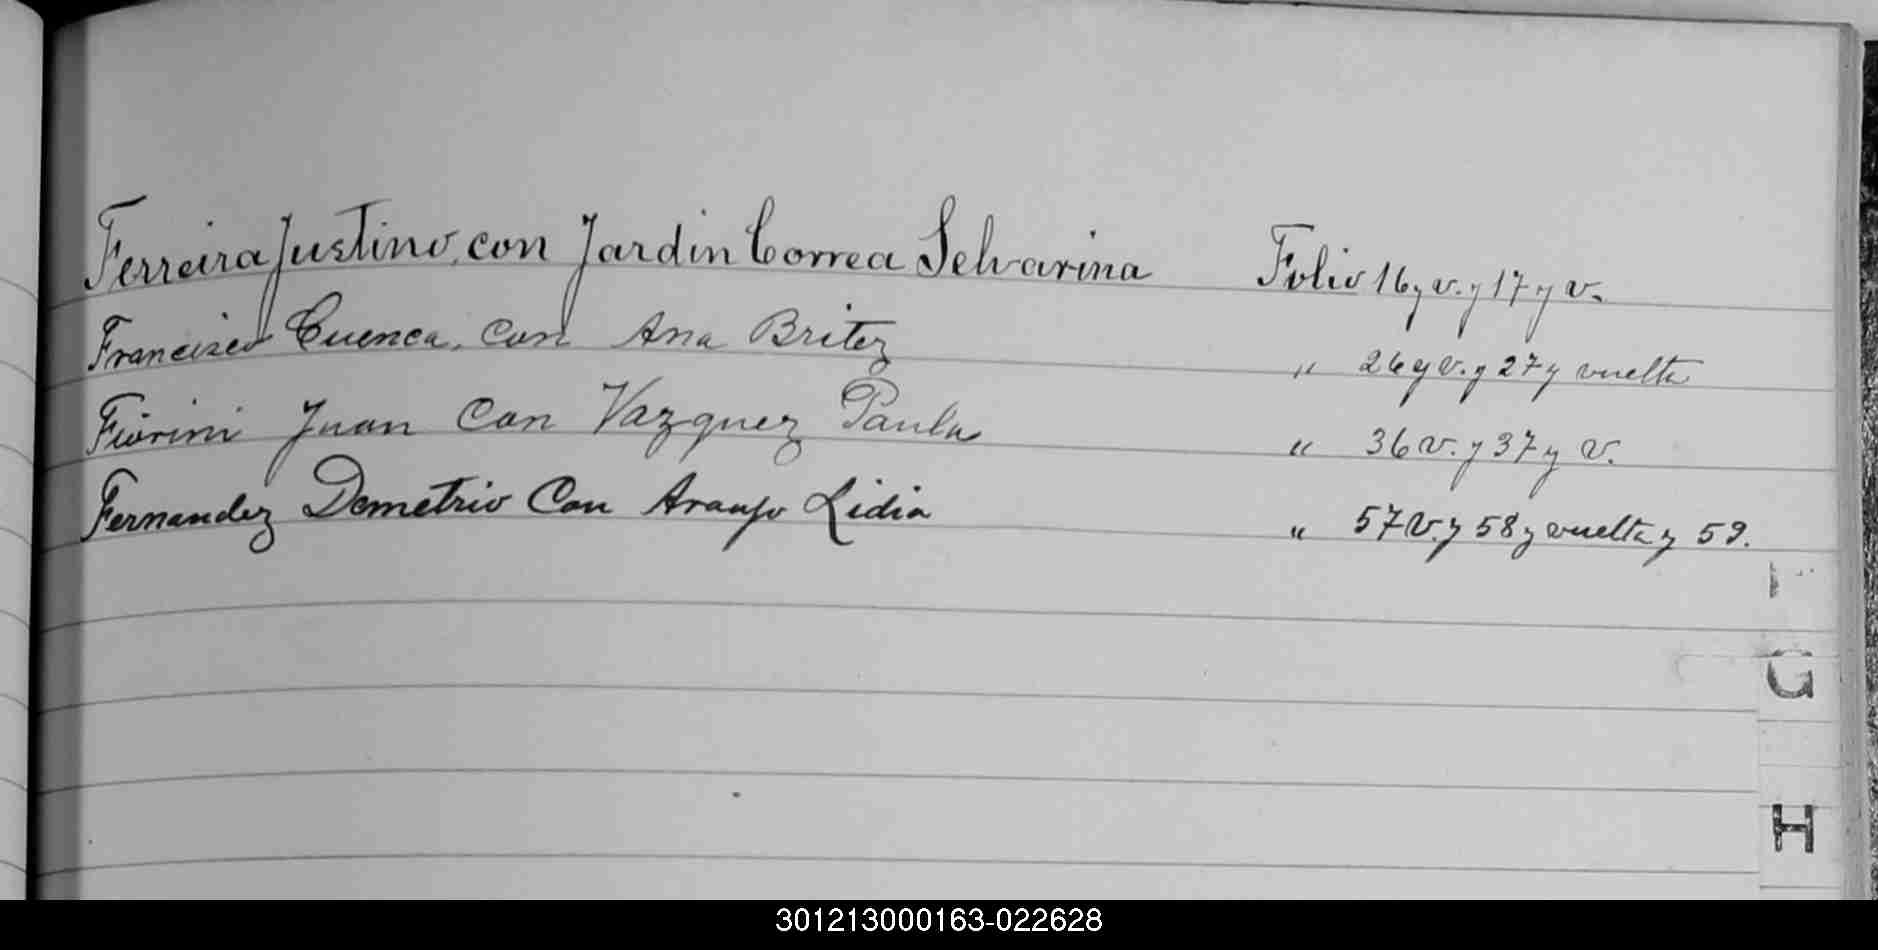 Ferreira Justino, con Jardin Correa Selvarina Folio 16 y v. y 17 y v.
Francisco Cuenca, con Ana Britez " 26 y v. y 27 y vuelta
Fiorini Juan Con Vazquez Paula " 36 v. y 37 y v.
Fernandez Demetrio Con Araujo Lidia " 57 v. y 58 y vuelta y 59.
F
G
H
301213000163-022628